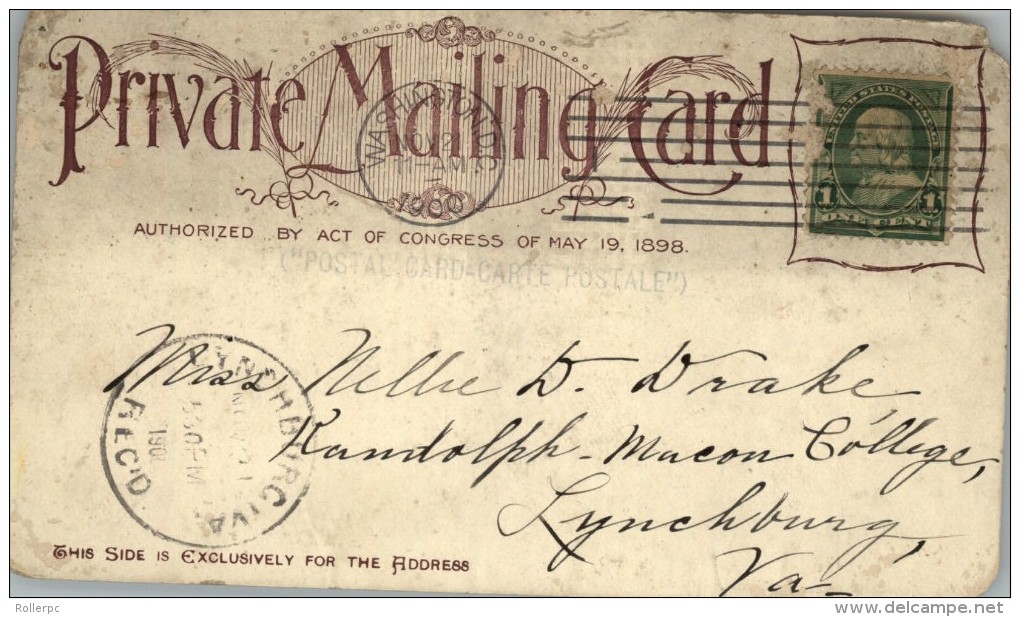 Private Mailing Card
WASHINGTON, D.C.
1900
UNITED STATES POSTAGE
1 1
ONE CENT
AUTHORIZED BY ACT OF CONGRESS OF MAY 19, 1898.
("POSTAL CARD-CARTE POSTALE")
Miss Nellie D. Drake
Randolph-Macon College,
Lynchburg,
Va-
LYNCHBURG, VA.
830PM
REC'D
THIS SIDE IS EXCLUSIVELY FOR THE ADDRESS
Rollerpc
www.delcampe.net